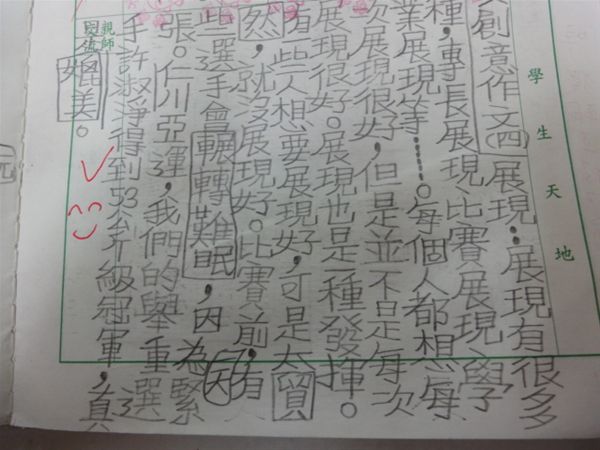 學生天地
創意作文(四)展現:展現有很多
種,專長展現、比賽展現、學
業展現等……。每個人都想每
次展現很好,但是並不是每次
展現很好。展現也是一種發揮。
有些人想要展現好,可是太貿
然,就沒展現好。比賽前,有
些選手會輾轉難眠,因為緊
因
張。仁川亞運,我們的舉重選
手許淑淨得到53公斤級冠軍,真
媲美。
親師交流